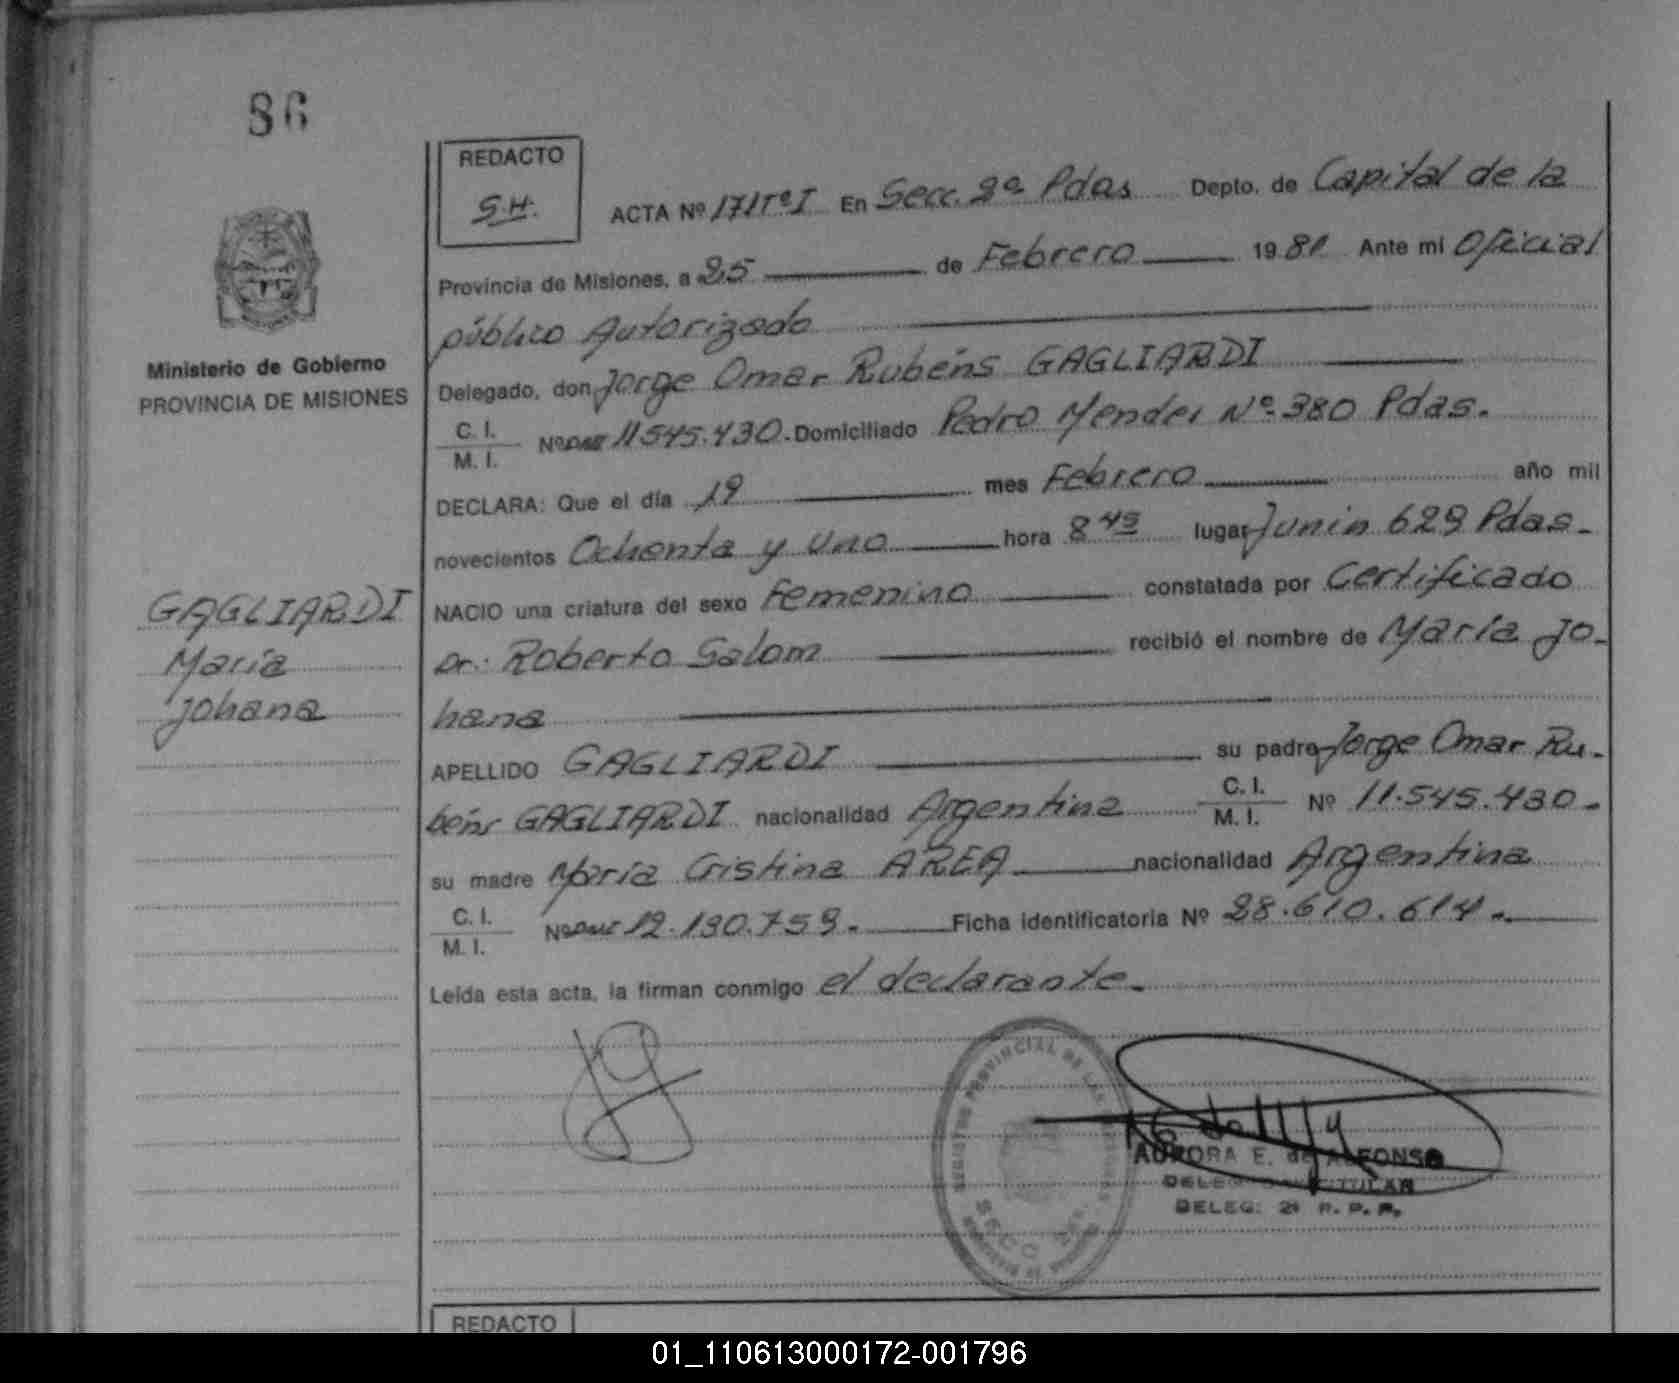 86
REDACTO
S.H.
ACTA Nº 171Tº I En Secc. 2ª Pdas Depto. de Capital de la
Provincia de Misiones, a 25 de Febrero 1981 Ante mi Oficial
público Autorizado
Ministerio de Gobierno
PROVINCIA DE MISIONES
Delegado, don Jorge Omar Rubéns GAGLIARDI
C. I.
M. I. Nº 11545.430. Domiciliado Pedro Mendez Nº 380 Pdas.
DECLARA: Que el día 19 mes Febrero año mil
novecientos Ochenta y Uno hora 8 45 lugar Junin 629 Pdas.
GAGLIARDI
María
Johana
NACIO una criatura del sexo Femenino constatada por Certificado
Dr.: Roberto Salom recibió el nombre de María Jo-
hana
APELLIDO GAGLIARDI su padre Jorge Omar Ru-
béns GAGLIARDI nacionalidad Argentina C. I. M. I. Nº 11.545.430.
su madre María Cristina AREA nacionalidad Argentina
C. I.
M. I. Nº 12.190.759. Ficha identificatoria Nº 28.610.614.
Leída esta acta, la firman conmigo el declarante.
REGISTRO PROVINCIAL DE LAS
AURORA E. de ALFONSO
DELEG. TITULAR
DELEG: 2ª R. P. P.
REDACTO
01_110613000172-001796